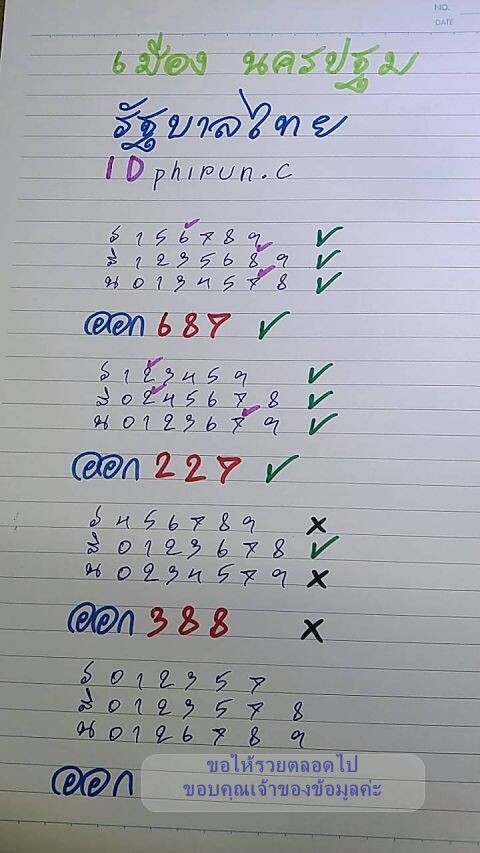 NO.
DATE
เมือง นครปฐม
รัฐบาลไทย
ID phirun.c
ร 1 5 6 7 8 9 ✓
สิ 1 2 3 5 6 8 9 ✓
น 0 1 3 4 5 7 8 ✓
ออก 687 ✓
ร 1 2 3 4 5 9 ✓
สิ 0 2 4 5 6 7 8 ✓
น 0 1 2 3 6 7 9 ✓
ออก 227 ✓
ร 4 5 6 7 8 9 ×
สิ 0 1 2 3 6 7 8 ✓
น 0 2 3 4 5 7 9 ×
ออก 388 ×
ร 0 1 2 3 5 7
สิ 0 1 2 3 5 7 8
น 0 1 2 6 7 8 9
ออก
ขอให้รวยตลอดไป
ขอบคุณเจ้าของข้อมูลค่ะ